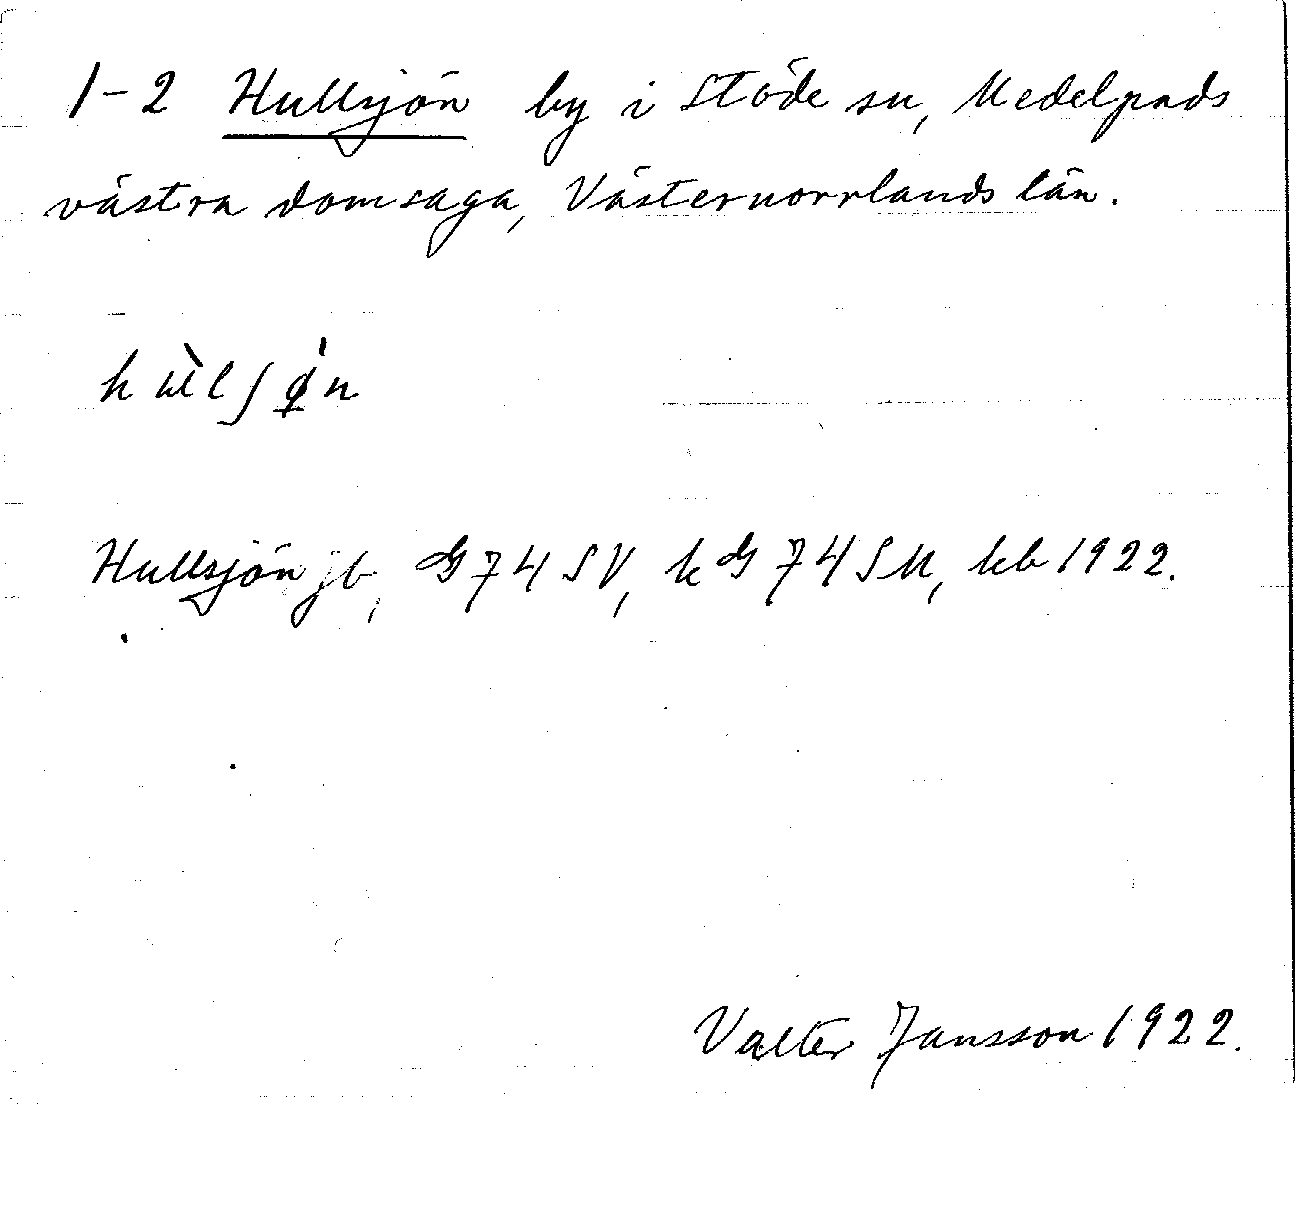 1-2 Hullsjön by i Stöde sn, Medelpads
västra domsaga, Västernorrlands län.
hùlʃø̀n
Hullsjön jb, G 74 SV, k G 74 SM, kb 1922.
Valter Jansson 1922.